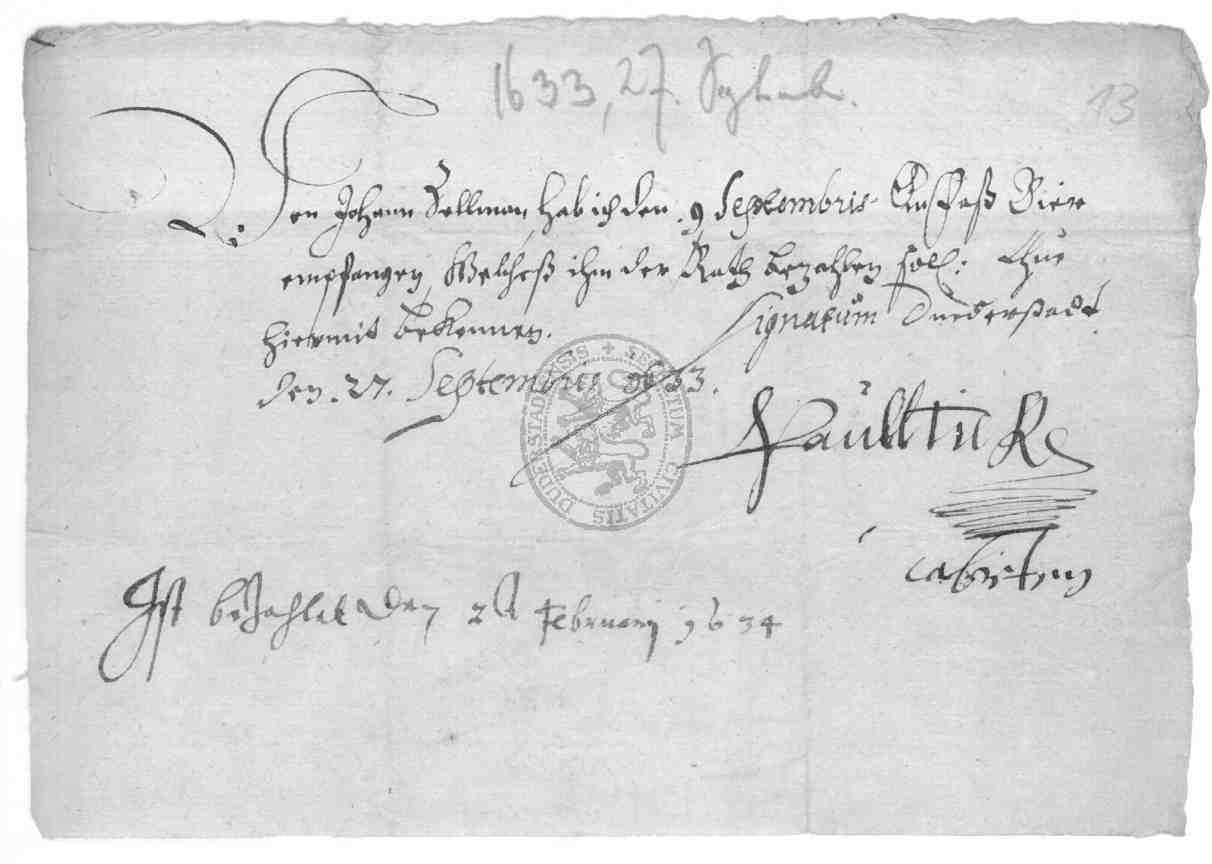 1633, 27. Septemb.
13
Von Johann Hellman, hab ich den 9 Septembris Ein Faß Bier
empfangen, Welcheß ihm der Rath bezahlen soll: Thue
hiermit bekennen. Signatum Duderstadt
den 27. Septembris 1633.
SECRETUM CIVITATIS DUDERSTADENSIS
Paull
Ist bezahlet den Februarij 1634